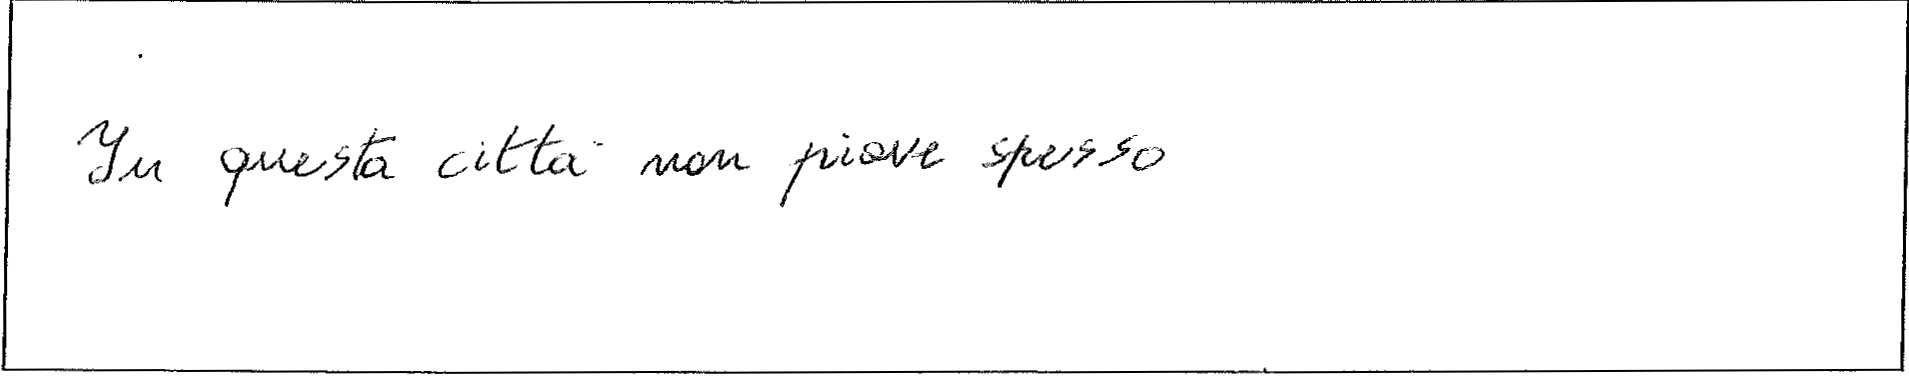 In questa città non piove spesso